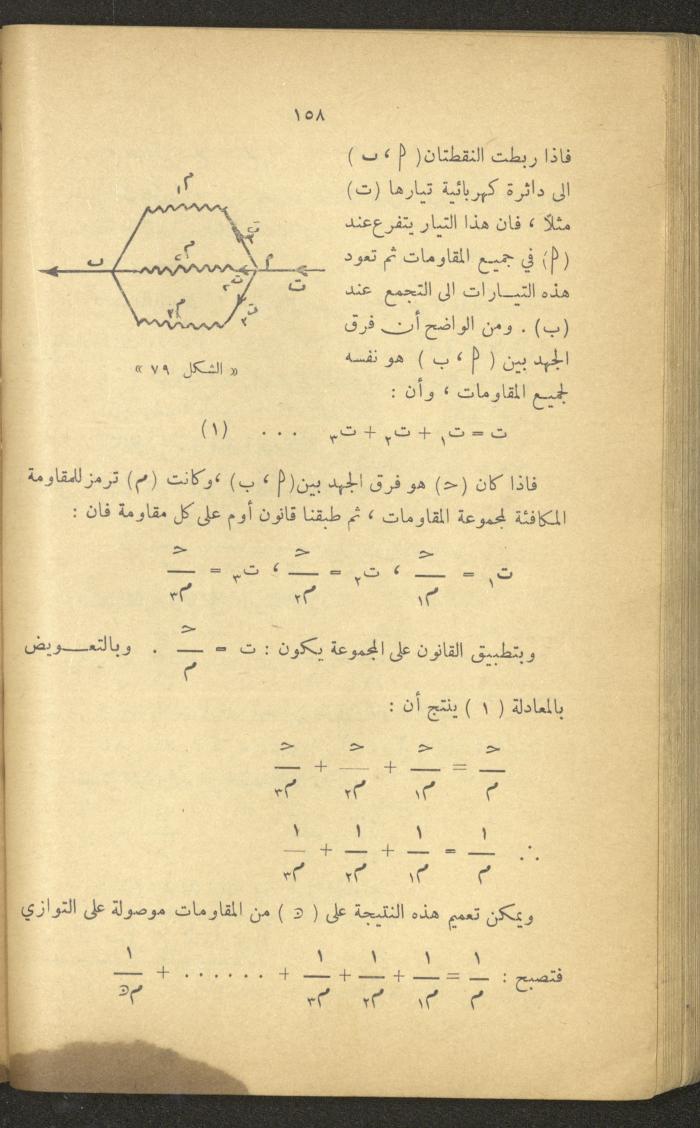 ١٥٨
فاذا ربطت النقطتان ( م ، ب )
الى دائرة كهربائية تيارها (ت)
مثلاً ، فان هذا التيار يتفرع عند
(م) في جميع المقاومات ثم تعود
هذه التيـارات الى التجمع عند
(ب) . ومن الواضح أن فرق
الجهد بين ( م ، ب ) هو نفسه
لجميع المقاومات ، وأن :
« الشكل ٧٩ »
ت = ت١ + ت٢ + ت٣ ... (١)
فاذا كان (ح) هو فرق الجهد بين (م ، ب) ، وكانت (م) ترمز للمقاومة
المكافئة لمجموعة المقاومات ، ثم طبقنا قانون أوم على كل مقاومة فان :
ت١ = ح/م١ ، ت٢ = ح/م٢ ، ت٣ = ح/م٣
وبتطبيق القانون على المجموعة يكون : ت = ح/م . وبالتعـويض
بالمعادلة ( ١ ) ينتج أن :
ح/م = ح/م١ + ح/م٢ + ح/م٣
∴ ١/م = ١/م١ + ١/م٢ + ١/م٣
ويمكن تعميم هذه النتيجة على ( ن ) من المقاومات موصولة على التوازي
فتصبح : ١/م = ١/م١ + ١/م٢ + ١/م٣ + ....... + ١/من